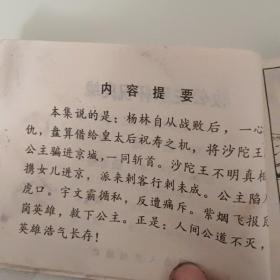 内容提要
本集说的是：杨林自从战败后，一心
仇，盘算借给皇太后祝寿之机，将沙陀王
公主骗进京城，一同斩首。沙陀王不明真相
携女儿进京，派来刺客行刺未成。公主陷
虎口。宇文霸循私，反遭痛斥。紫烟飞报瓦
岗英雄，救下公主。正是：人间公道不灭，
英雄浩气长存！